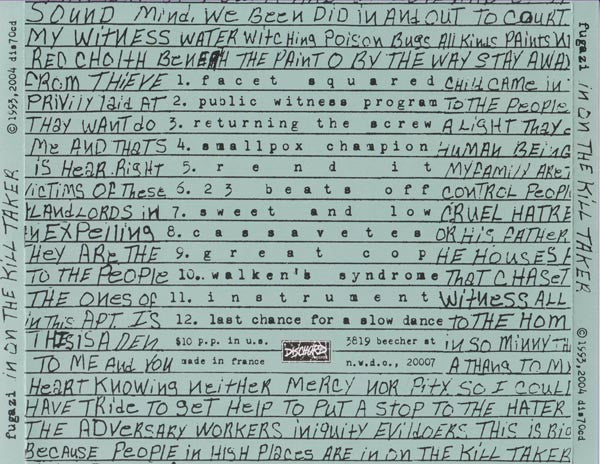 SOUND MIND. WE BEEN DID IN AND OUT TO COURT.
MY WITNESS WATER WITCHING POISON BUGS ALL KINDS PAINTS
RED CHOLTH BENEATH THE PAINT O BY THE WAY STAY AWAY
FROM THIEVE 1. facet squared CHILD CAME IN
PRIVILY LAID AT 2. public witness program TO THE PEOPLE
THAY WANT DO 3. returning the screw A LIGHT THAY
ME AND THATS 4. smallpox champion HUMAN BEING
IS HEAR. RIGHT 5. rend it MY FAMILY ARE
VICTIMS OF THESE 6. 23 beats off CONTROL PEOPL
LANDLORDS IN 7. sweet and low CRUEL HATRE
IN EXPELLING 8. cassavetes OR HIS FATHER
THEY ARE THE 9. great cop HE HOUSES
TO THE PEOPLE 10. walken's syndrome THAT CHASET
THE ONES OF 11. instrument WITNESS ALL
IN THIS APT. IS 12. last chance for a slow dance TO THE HOM
THIS IS A DEN $10 p.p. in u.s. DISCHORD 3819 beecher st IN SO MINNY TH
TO ME AND YOU made in france n.w.d.c., 20007 A THANG TO MY
HEART KNOWING NEITHER MERCY NOR PITY SO I COULD
HAVE TRIDE TO GET HELP TO PUT A STOP TO THE HATER
THE ADVERSARY WORKERS INIQUITY EVILDOERS THIS IS BIG
BECAUSE PEOPLE IN HIGH PLACES ARE IN ON THE KILL TAKER
fugazi IN ON THE KILL TAKER ©1993, 2004 dis70cd
fugazi IN ON THE KILL TAKER ©1993, 2004 dis70cd